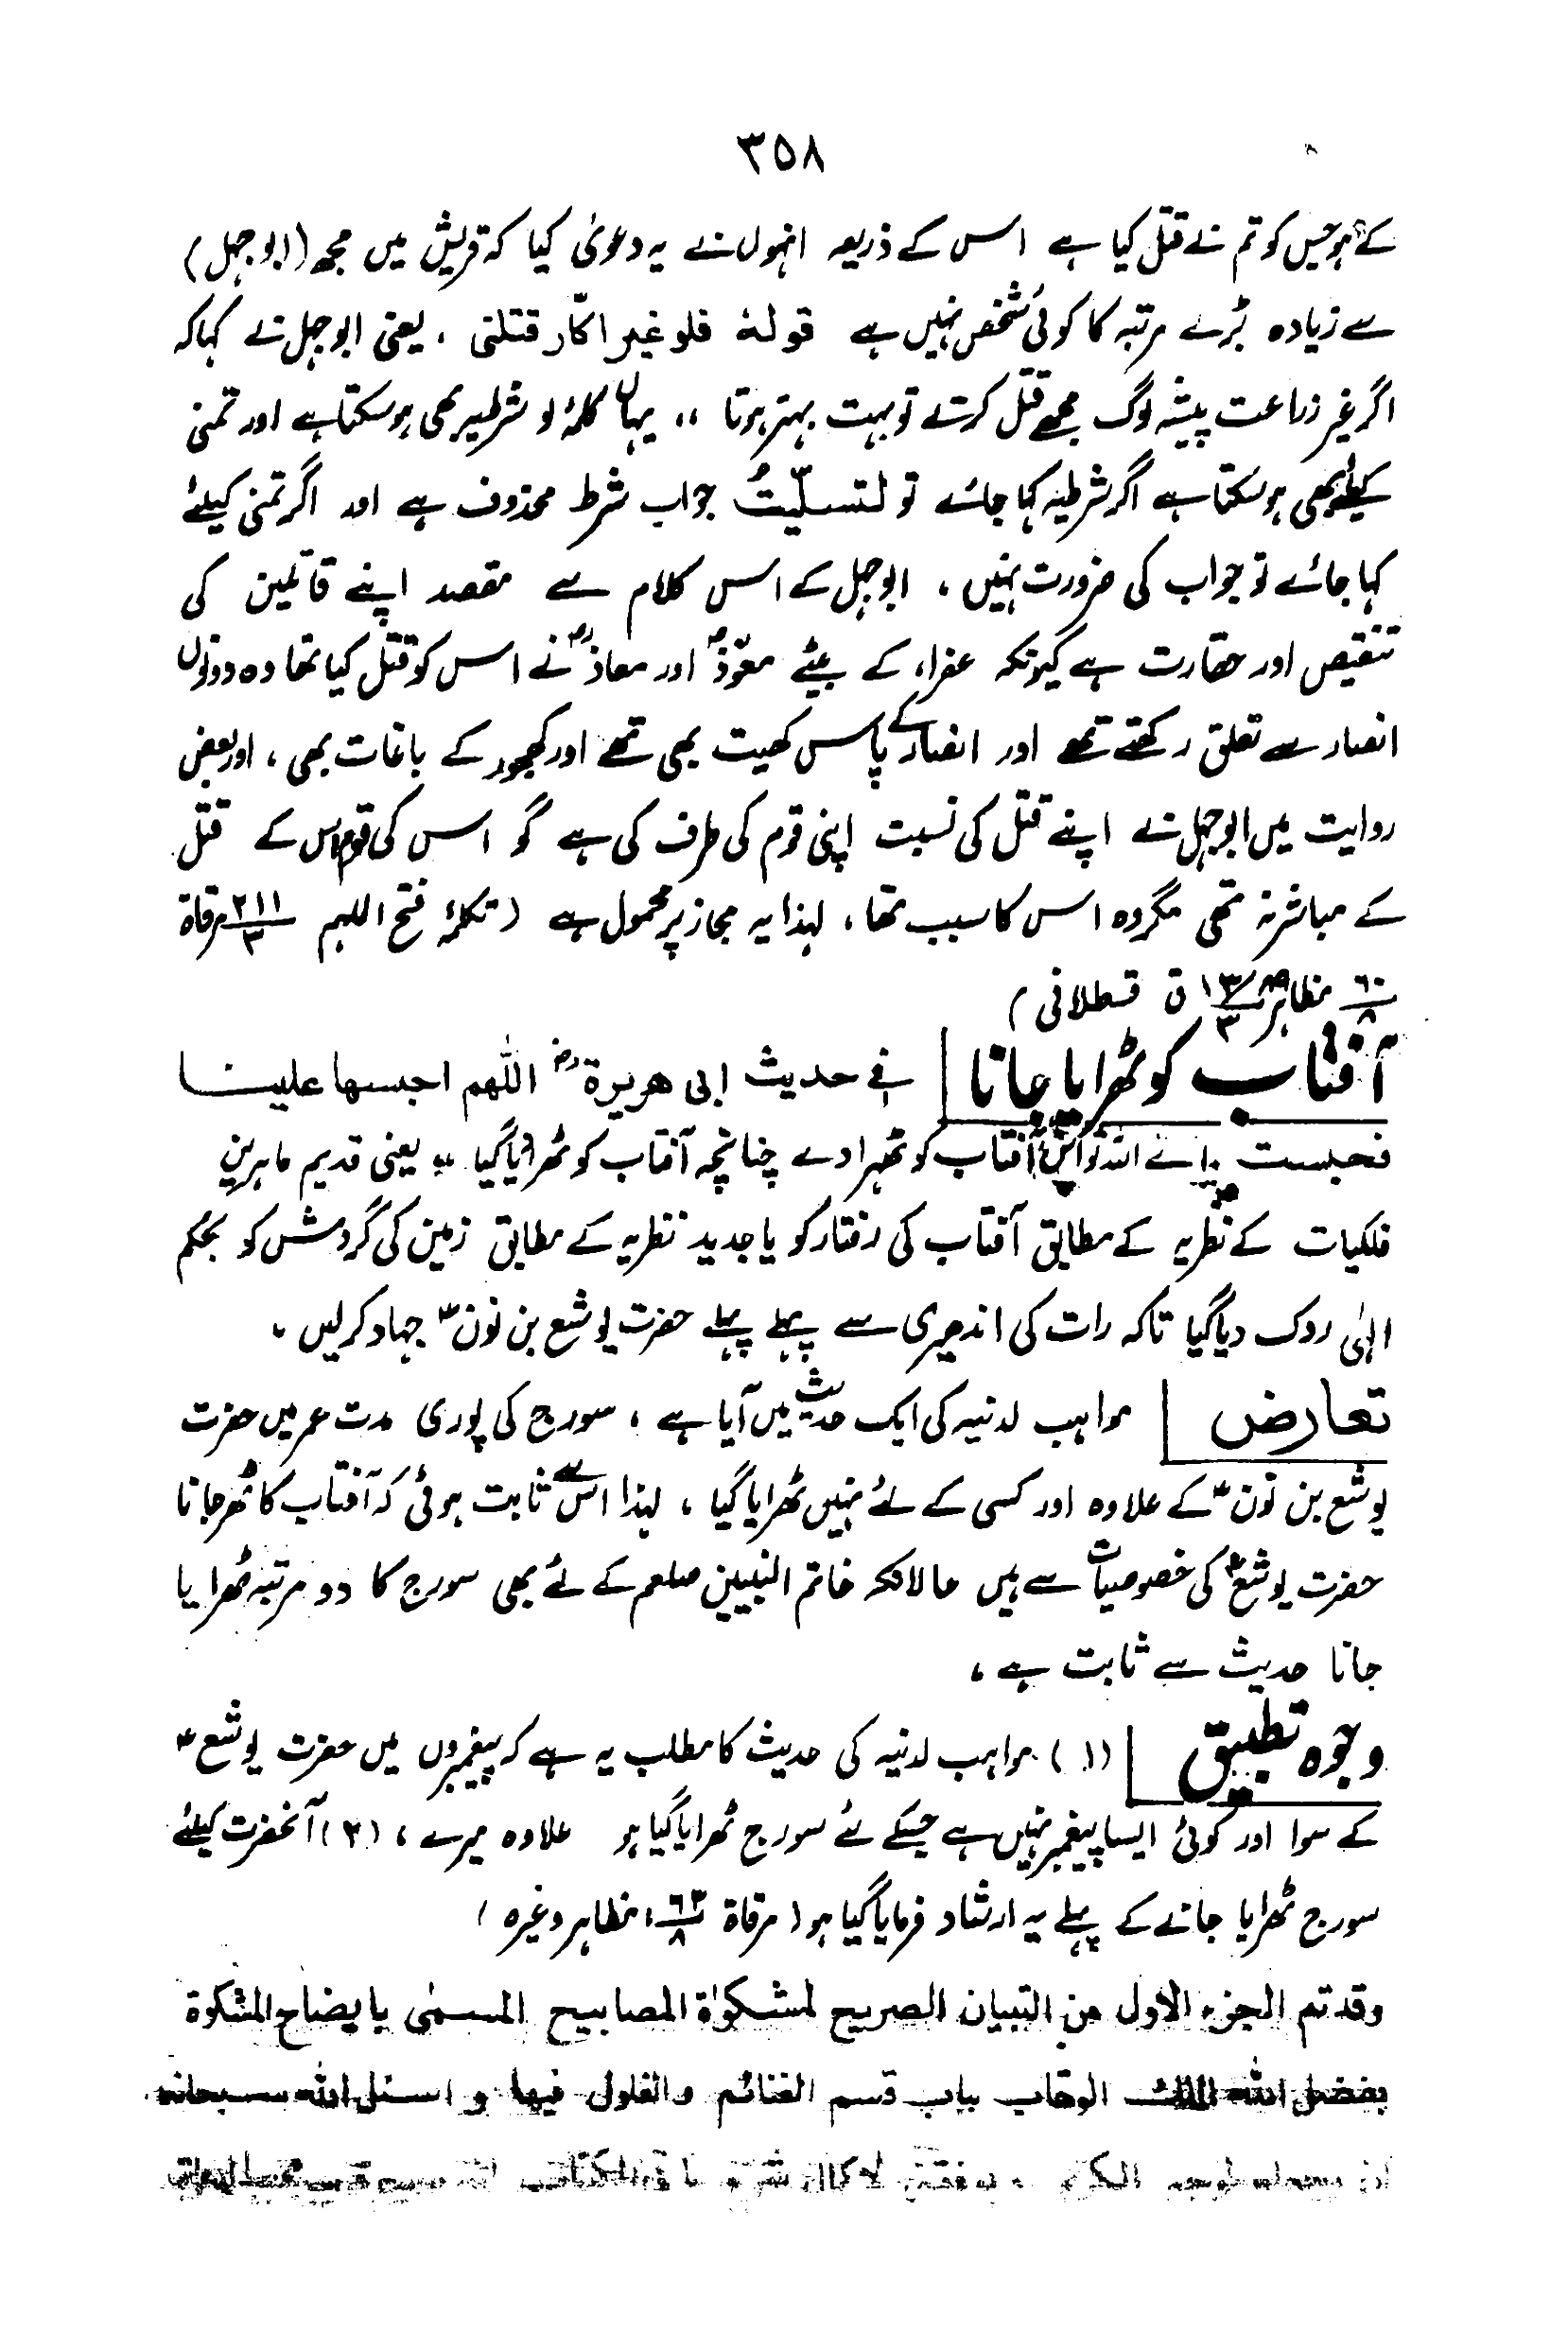 ۳۵۸
کے ہو جس کو تم نے قتل کیا ہے اس کے ذریعہ انہوں نے یہ دعویٰ کیا کہ قریش میں مجھ (ابوجہل)
سے زیادہ بڑے مرتبہ کا کوئی شخص نہیں ہے قولہٗ فلو غیر اکّار قتلنی ، یعنی ابوجہل نے کہا کہ
اگر غیر زراعت پیشہ لوگ مجھے قتل کرتے تو بہت بہتر ہوتا ،، یہاں کلمۂ لو شرطیہ بھی ہو سکتا ہے اور تمنی
کیلئے بھی ہو سکتا ہے اگر شرطیہ کہا جائے تو لتسلّیتُ جواب شرط محذوف ہے اور اگر تمنی کیلئے
کہا جائے تو جواب کی ضرورت نہیں ، ابوجہل کے اس کلام سے مقصد اپنے قاتلین کی
تنقیص اور حقارت ہے کیونکہ عفراء کے بیٹے معوّذؓ اور معاذؓ نے اس کو قتل کیا تھا وہ دونوں
انصار سے تعلق رکھتے تھے اور انصار کے پاس کھیت بھی تھے اور کھجور کے باغات بھی ، اور بعض
روایت میں ابوجہل نے اپنے قتل کی نسبت اپنی قوم کی طرف کی ہے گو اس کی قوم اس کے قتل
کے مباشر نہ تھی مگر وہ اس کا سبب تھا ، لہذا یہ مجاز پر محمول ہے (تکملۂ فتح الملہم ۲۱۱/۳ مرقاۃ
۶۰/۸ مظاہر ق قسطلانی)
آفتاب کو ٹھرایا جانا | فی حدیث ابی ھریرۃؓ اللّٰھم احبسھا علینا
فحبست ،، اے اللہ تو اس آفتاب کو ٹھہرا دے چنانچہ آفتاب کو ٹھرایا گیا ،، یعنی قدیم ماہرین
فلکیات کے نظریہ کے مطابق آفتاب کی رفتار کو یا جدید نظریہ کے مطابق زمین کی گردش کو بحکم
الہٰی روک دیا گیا تاکہ رات کی اندھیری سے پہلے پہلے حضرت یوشع بن نونؑ جہاد کرلیں ،
تعارض | مواہب لدنیہ کی ایک حدیث میں آیا ہے ، سورج کی پوری مدت عمر میں حضرت
یوشع بن نونؑ کے علاوہ اور کسی کے لئے نہیں ٹھرایا گیا ، لہذا اس سے ثابت ہوئی کہ آفتاب کا ٹھر جانا
حضرت یوشعؑ کی خصوصیات سے ہیں حالانکہ خاتم النبیین صلعم کے لئے بھی سورج کا دو مرتبہ ٹھرایا
جانا حدیث سے ثابت ہے ،
وجوہ تطبیق | (۱) مواہب لدنیہ کی حدیث کا مطلب یہ ہے کہ پیغمبروں میں حضرت یوشعؑ
کے سوا اور کوئی ایسا پیغمبر نہیں ہے جسکے لئے سورج ٹھرایا گیا ہو علاوہ میرے ، (۲) آنحضرت کیلئے
سورج ٹھرایا جانے کے پہلے یہ ارشاد فرمایا گیا ہو (مرقاۃ ۶۳/۸، مظاہر وغیرہ)
وقد تم الجزء الاول من التبیان الصریح لمشکوٰۃ المصابیح المسمٰی بایضاح المشکوۃ
بفضل اللہ الملک الوھاب بباب قسم الغنائم والغلول فیھا و اسئل اللہ سبحانہ
ان یجعلہ لوجہہ الکریم